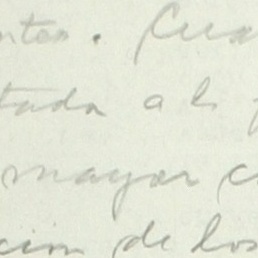 ntes. Cua
tada a l
mayor c
cion de los